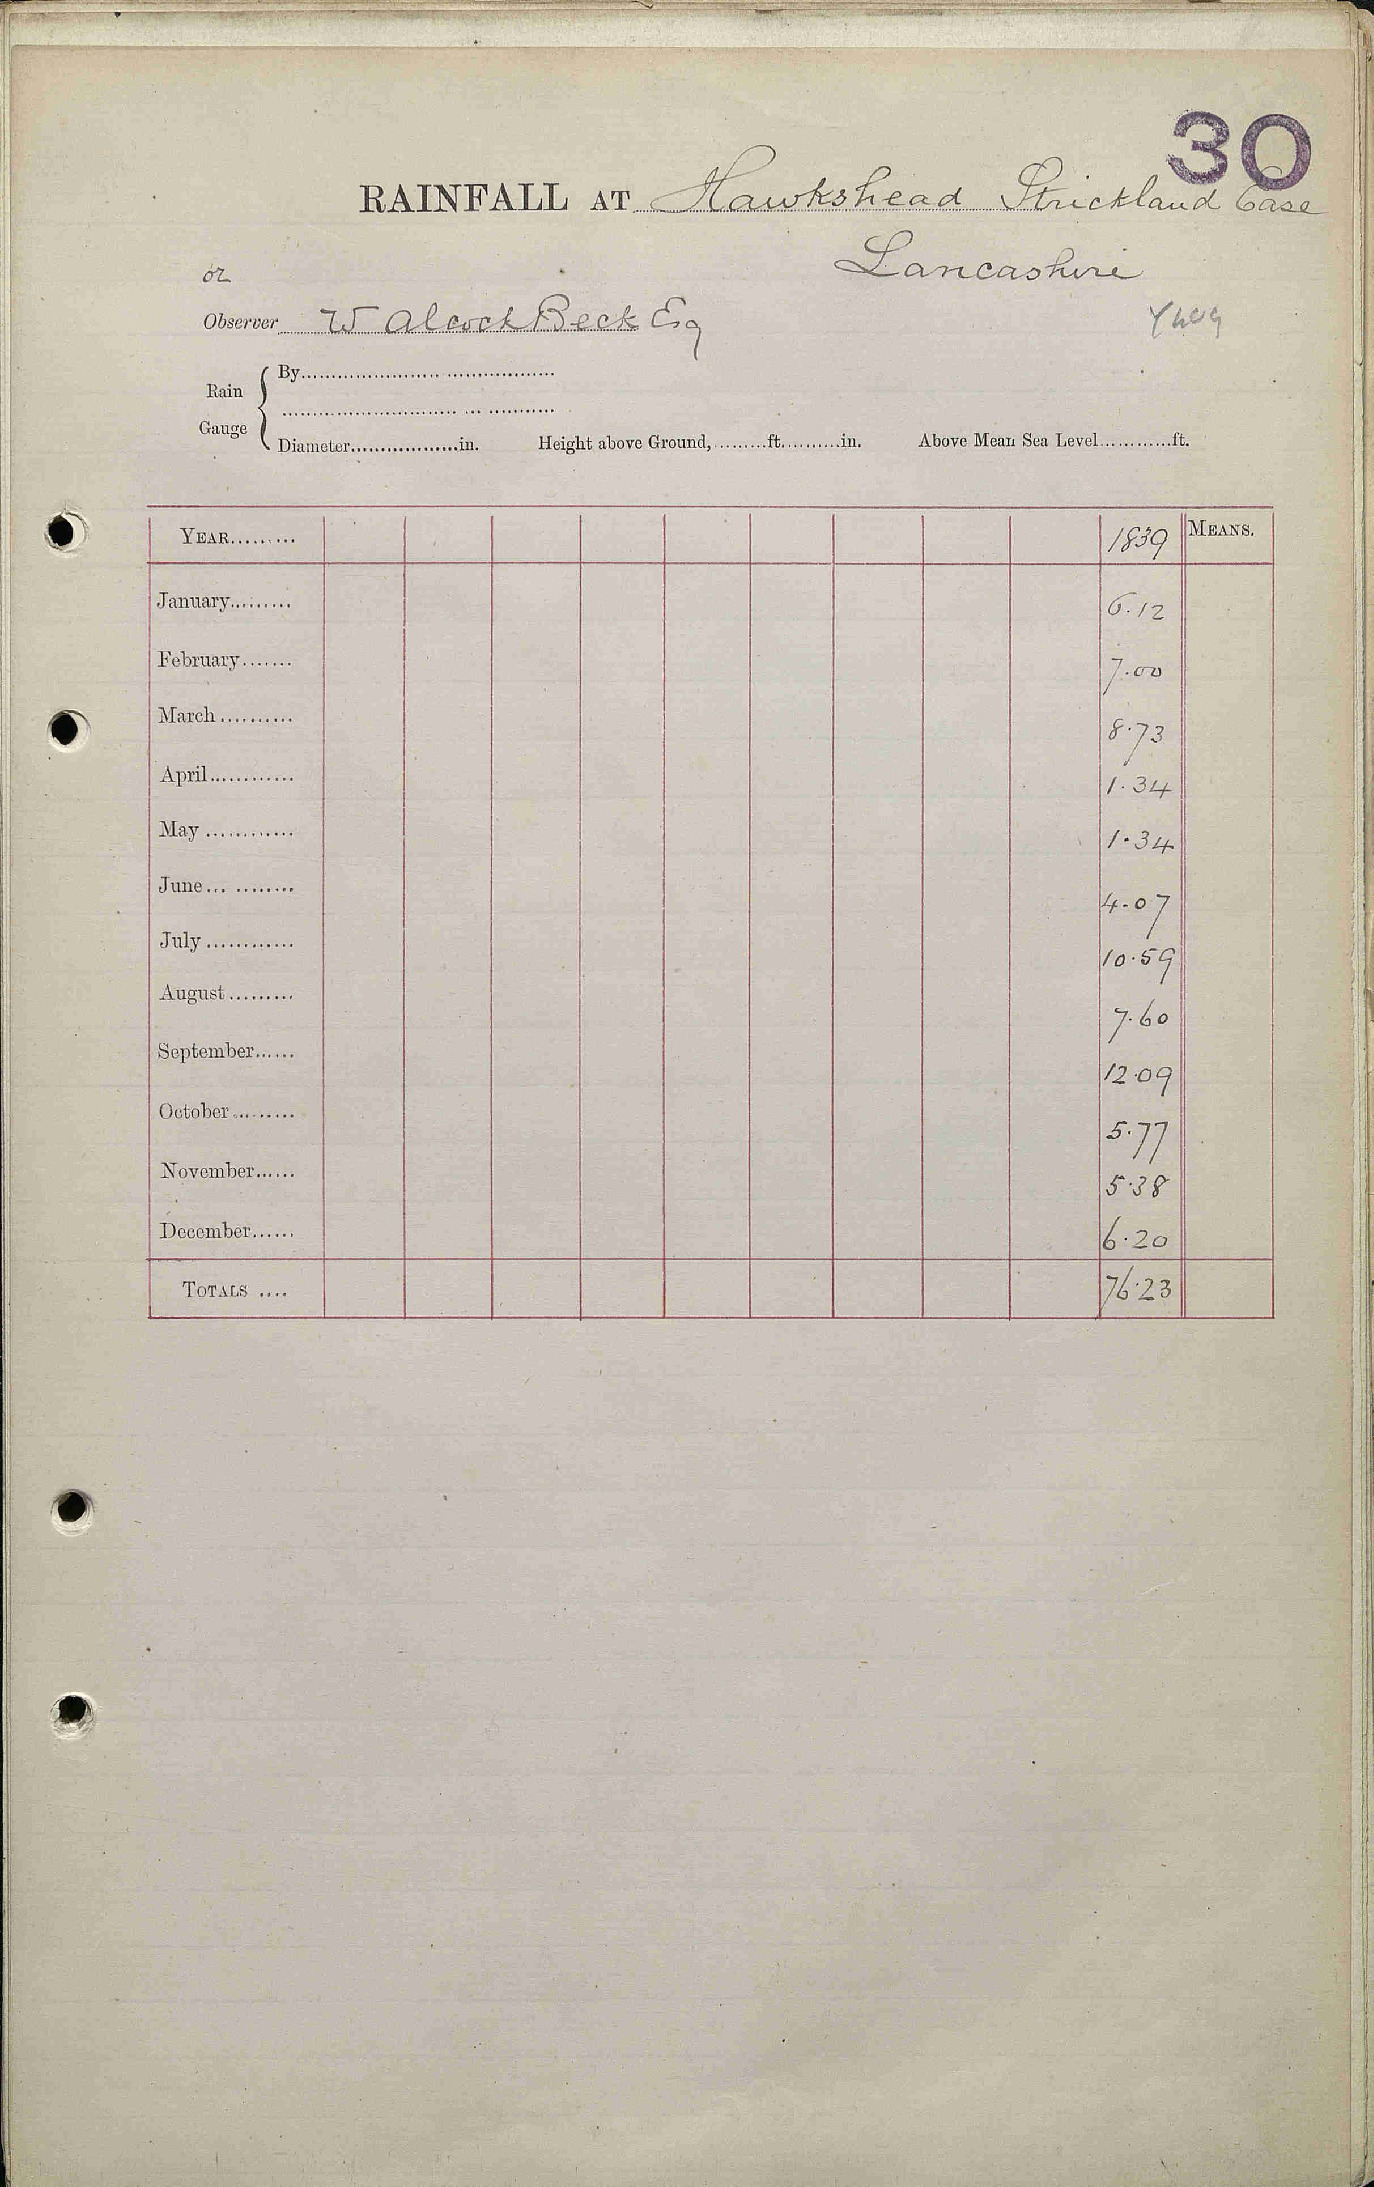 30
RAINFALL AT Hawkshead Strickland Ease
Lancashire
or
Observer W Alcock Beck Esq
Rain Gauge { By
Diameter in. Height above Ground, ft. in. Above Mean Sea Level ft.
YEAR 1839 MEANS.
January 6.12
February 7.00
March 8.73
April 1.34
May 1.34
June 4.07
July 10.59
August 7.60
September 12.09
October 5.77
November 5.38
December 6.20
TOTALS 76.23